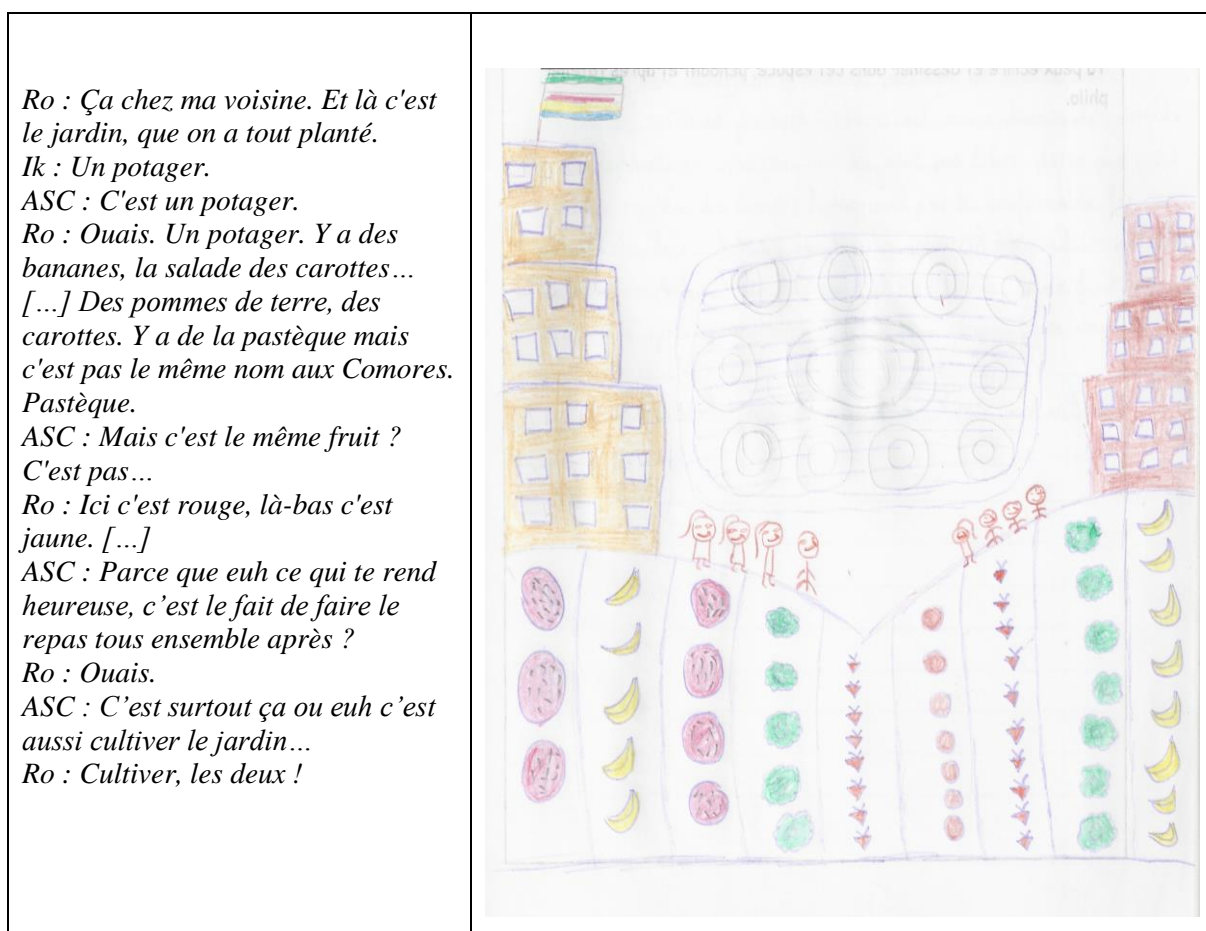 Ro : Ça chez ma voisine. Et là c'est
le jardin, que on a tout planté.
Ik : Un potager.
ASC : C'est un potager.
Ro : Ouais. Un potager. Y a des
bananes, la salade des carottes…
[…] Des pommes de terre, des
carottes. Y a de la pastèque mais
c'est pas le même nom aux Comores.
Pastèque.
ASC : Mais c'est le même fruit ?
C'est pas…
Ro : Ici c'est rouge, là-bas c'est
jaune. […]
ASC : Parce que euh ce qui te rend
heureuse, c’est le fait de faire le
repas tous ensemble après ?
Ro : Ouais.
ASC : C’est surtout ça ou euh c’est
aussi cultiver le jardin…
Ro : Cultiver, les deux !